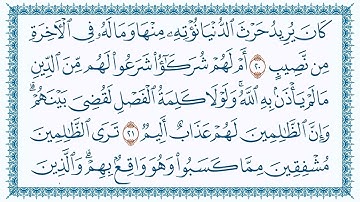 كَانَ يُرِيدُ حَرْثَ ٱلدُّنْيَا نُؤْتِهِۦ مِنْهَا وَمَا لَهُۥ فِى ٱلْـَٔاخِرَةِ
مِن نَّصِيبٍ ٢٠ أَمْ لَهُمْ شُرَكَـٰٓؤُا۟ شَرَعُوا۟ لَهُم مِّنَ ٱلدِّينِ
مَا لَمْ يَأْذَنۢ بِهِ ٱللَّهُ ۚ وَلَوْلَا كَلِمَةُ ٱلْفَصْلِ لَقُضِىَ بَيْنَهُمْ ۗ
وَإِنَّ ٱلظَّـٰلِمِينَ لَهُمْ عَذَابٌ أَلِيمٌ ٢١ تَرَى ٱلظَّـٰلِمِينَ
مُشْفِقِينَ مِمَّا كَسَبُوا۟ وَهُوَ وَاقِعٌۢ بِهِمْ ۗ وَٱلَّذِينَ